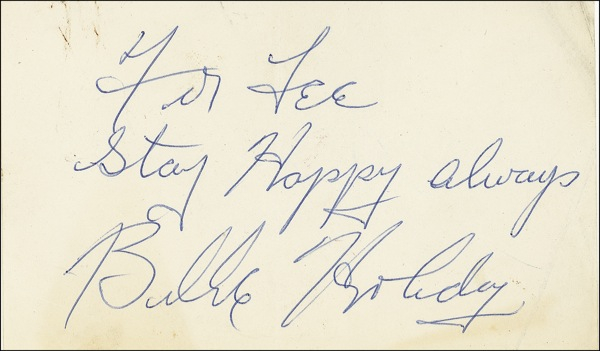 For Lee
Stay Happy always
Billie Holiday